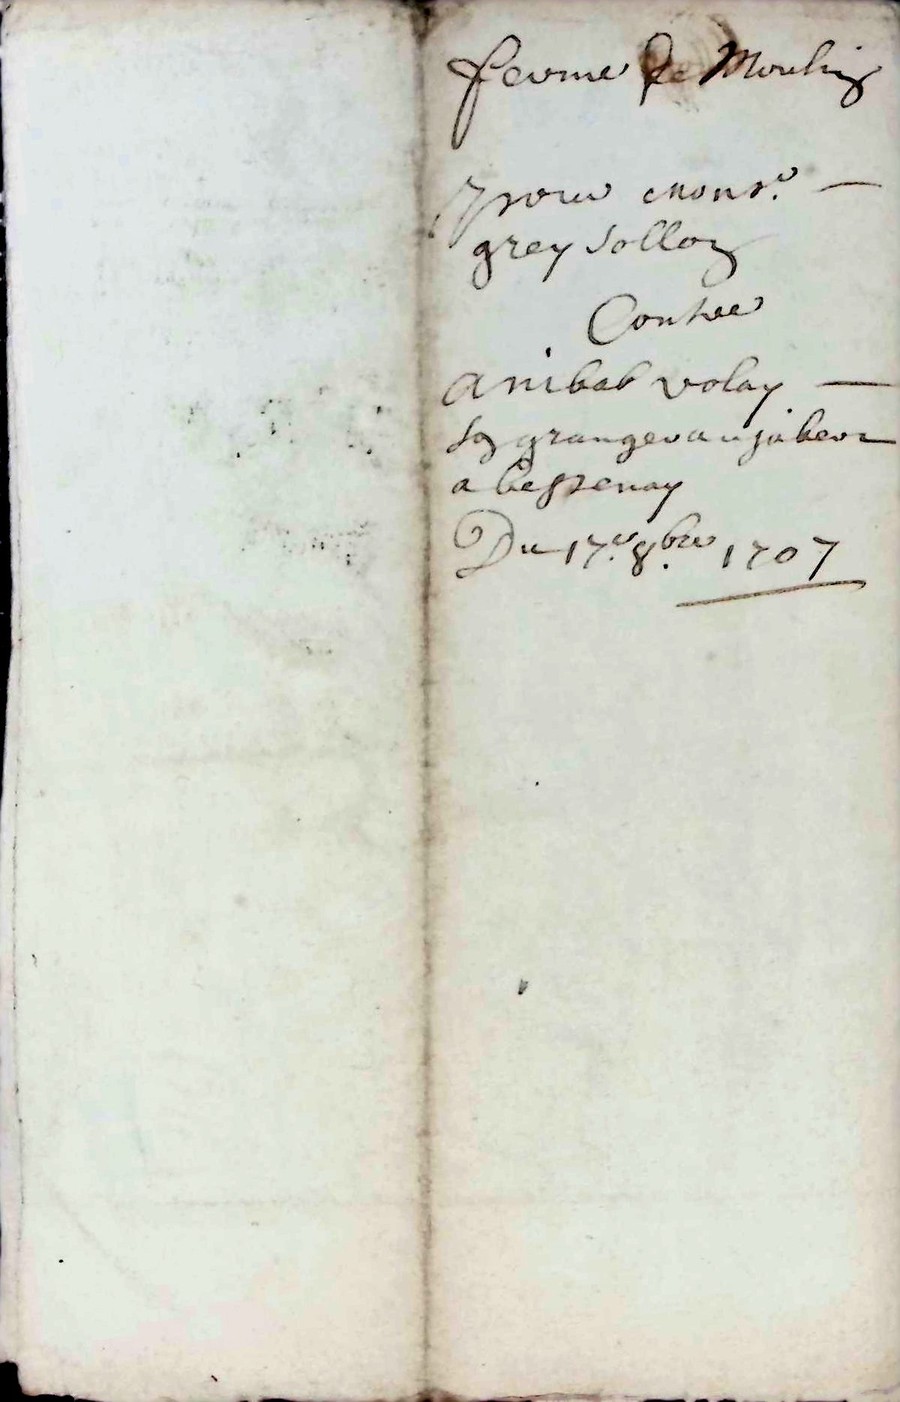 ferme de Moulin
pour Monsr.
grey Solloz
Contre
anibal volay
son granger a
a bessenay
Du 17e. 8bre 1707